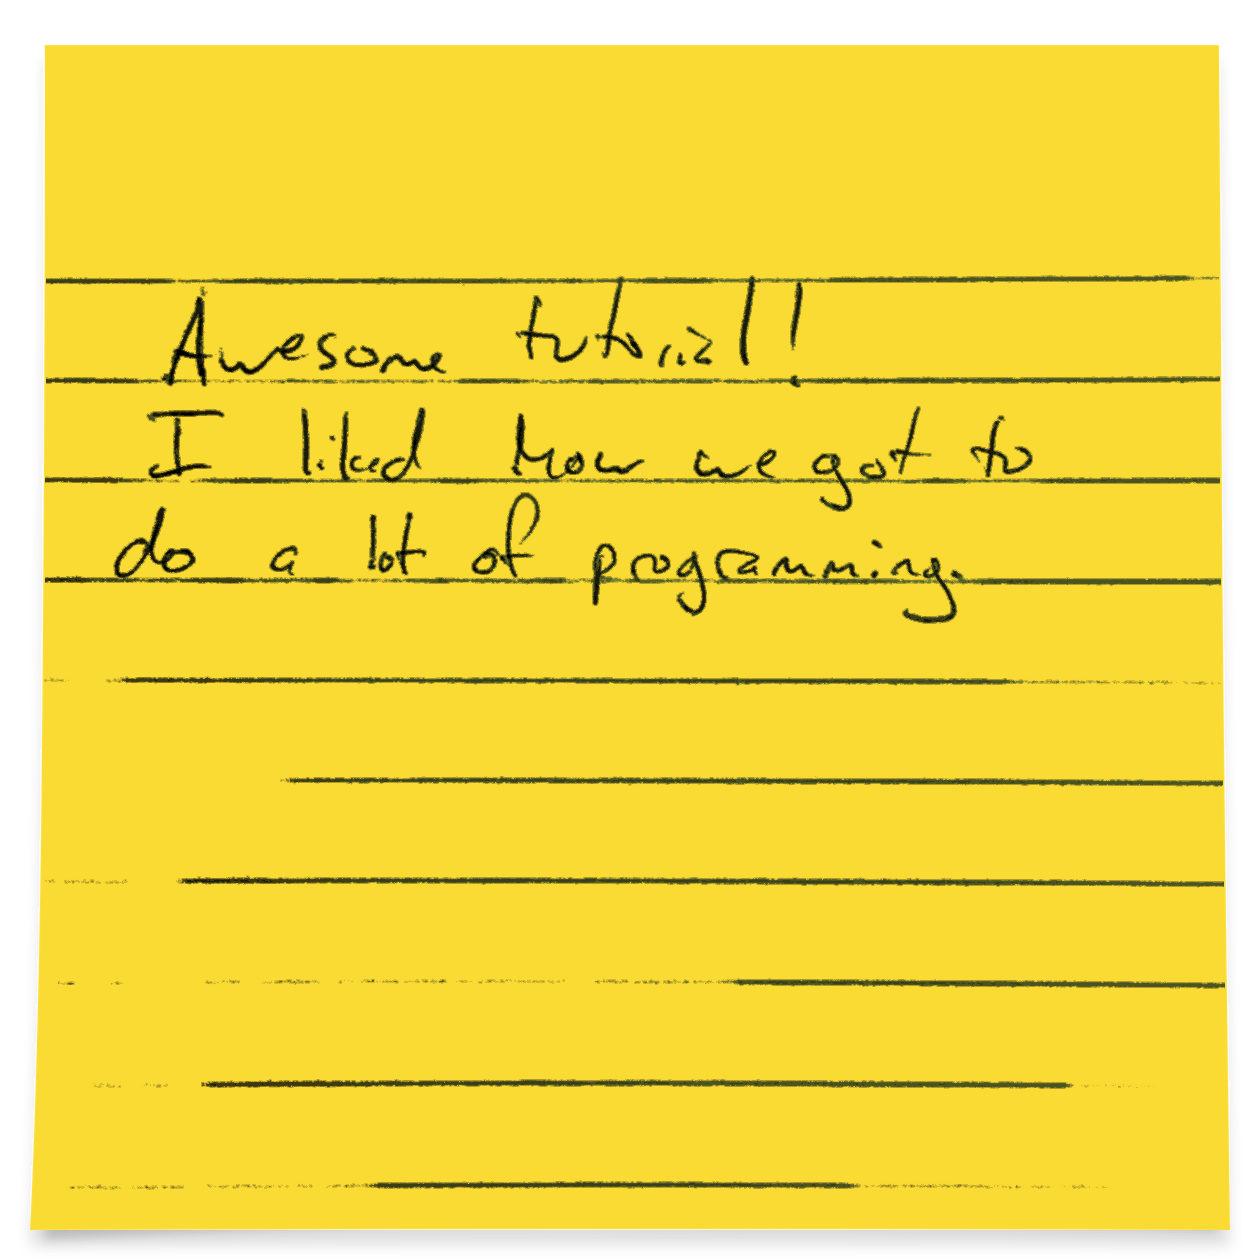 Awesome tutorial!
I liked how we got to
do a lot of programming.